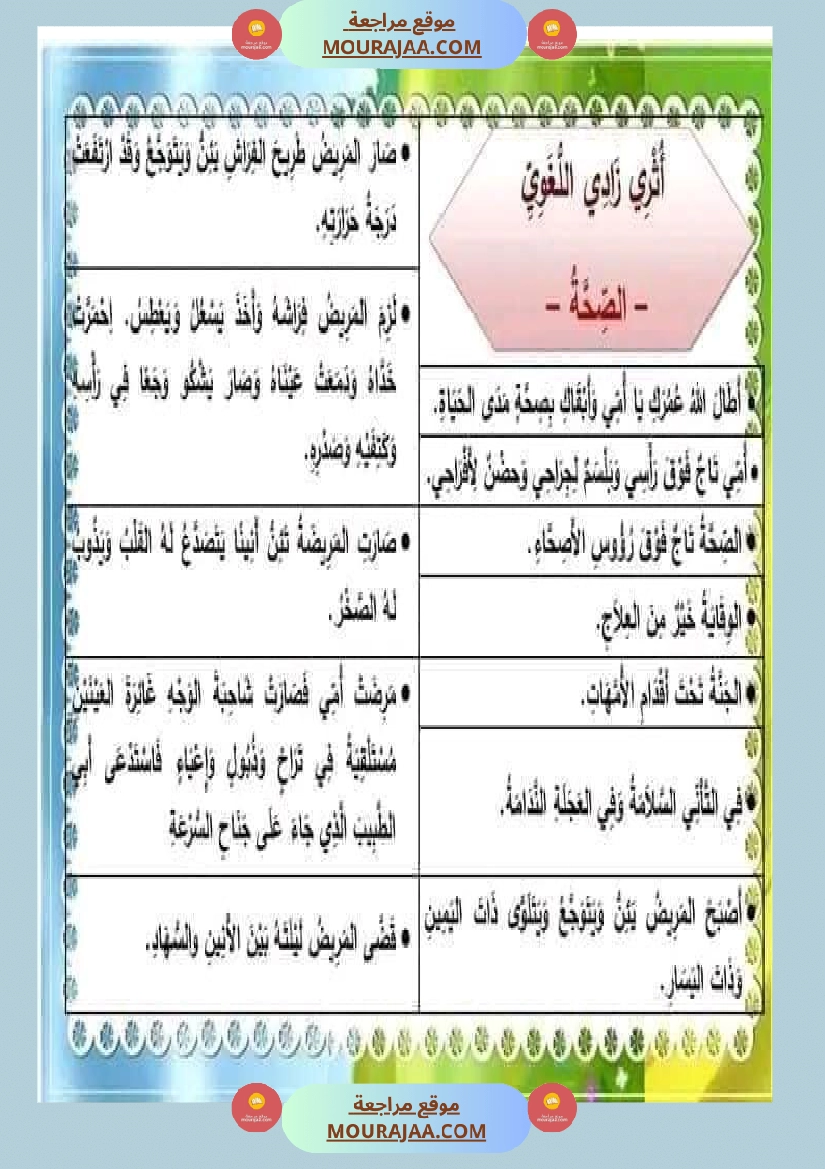 موقع مراجعة
MOURAJAA.COM
أُثْرِي زَادِي اللُّغَوِيّ
– الصِّحَّةُ –
• أَطَالَ اللهُ عُمُرَكِ يَا أُمِّي وَأَبْقَاكِ بِصِحَّةٍ مَدَى الحَيَاةِ.
• أُمِّي تَاجٌ فَوْقَ رَأْسِي وَبَلْسَمٌ لِجِرَاحِي وَحِضْنٌ لِأَفْرَاحِي.
• الصِّحَّةُ تَاجٌ فَوْقَ رُؤُوسِ الأَصِحَّاءِ.
• الوِقَايَةُ خَيْرٌ مِنَ العِلاَجِ.
• الجَنَّةُ تَحْتَ أَقْدَامِ الأُمَّهَاتِ.
• فِي التَّأَنِّي السَّلاَمَةُ وَفِي العَجَلَةِ النَّدَامَةُ.
• أَصْبَحَ المَرِيضُ يَئِنُّ وَيَتَوَجَّعُ وَيَتَلَوَّى ذَاتَ اليَمِينِ
وَذَاتَ اليَسَارِ.
• صَارَ المَرِيضُ طَرِيحَ الفِرَاشِ يَئِنُّ وَيَتَوَجَّعُ وَقَدْ ارْتَفَعَتْ
دَرَجَةُ حَرَارَتِهِ.
• لَزِمَ المَرِيضُ فِرَاشَهُ وَأَخَذَ يَسْعُلُ وَيَعْطِسُ. اِحْمَرَّتْ
خَدَّاهُ وَدَمَعَتْ عَيْنَاهُ وَصَارَ يَشْكُو وَجَعًا فِي رَأْسِهِ
وَكَتِفَيْهِ وَصَدْرِهِ.
• صَارَتِ المَرِيضَةُ تَئِنُّ أَنِينًا يَتَصَدَّعُ لَهُ القَلْبُ وَيَذُوبُ
لَهُ الصَّخْرُ.
• مَرِضَتْ أُمِّي فَصَارَتْ شَاحِبَةَ الوَجْهِ غَائِرَةَ العَيْنَيْنِ
مُسْتَلْقِيَةً فِي تَرَاخٍ وَذُبُولٍ وَإِعْيَاءٍ فَاسْتَدْعَى أَبِي
الطَّبِيبَ الَّذِي جَاءَ عَلَى جَنَاحِ السُّرْعَةِ
• قَضَّى المَرِيضُ لَيْلَتَهُ بَيْنَ الأَنِينِ والسُّهَادِ.
موقع مراجعة
MOURAJAA.COM